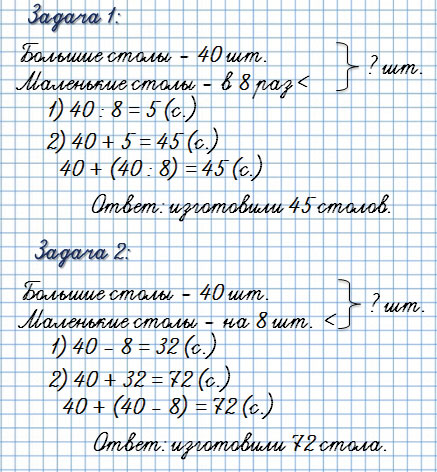 Задача 1:
Большие столы – 40 шт.
Маленькие столы – в 8 раз <
? шт.
1) 40 : 8 = 5 (с.)
2) 40 + 5 = 45 (с.)
40 + (40 : 8) = 45 (с.)
Ответ: изготовили 45 столов.
Задача 2:
Большие столы – 40 шт.
Маленькие столы – на 8 шт. <
? шт.
1) 40 – 8 = 32 (с.)
2) 40 + 32 = 72 (с.)
40 + (40 – 8) = 72 (с.)
Ответ: изготовили 72 стола.